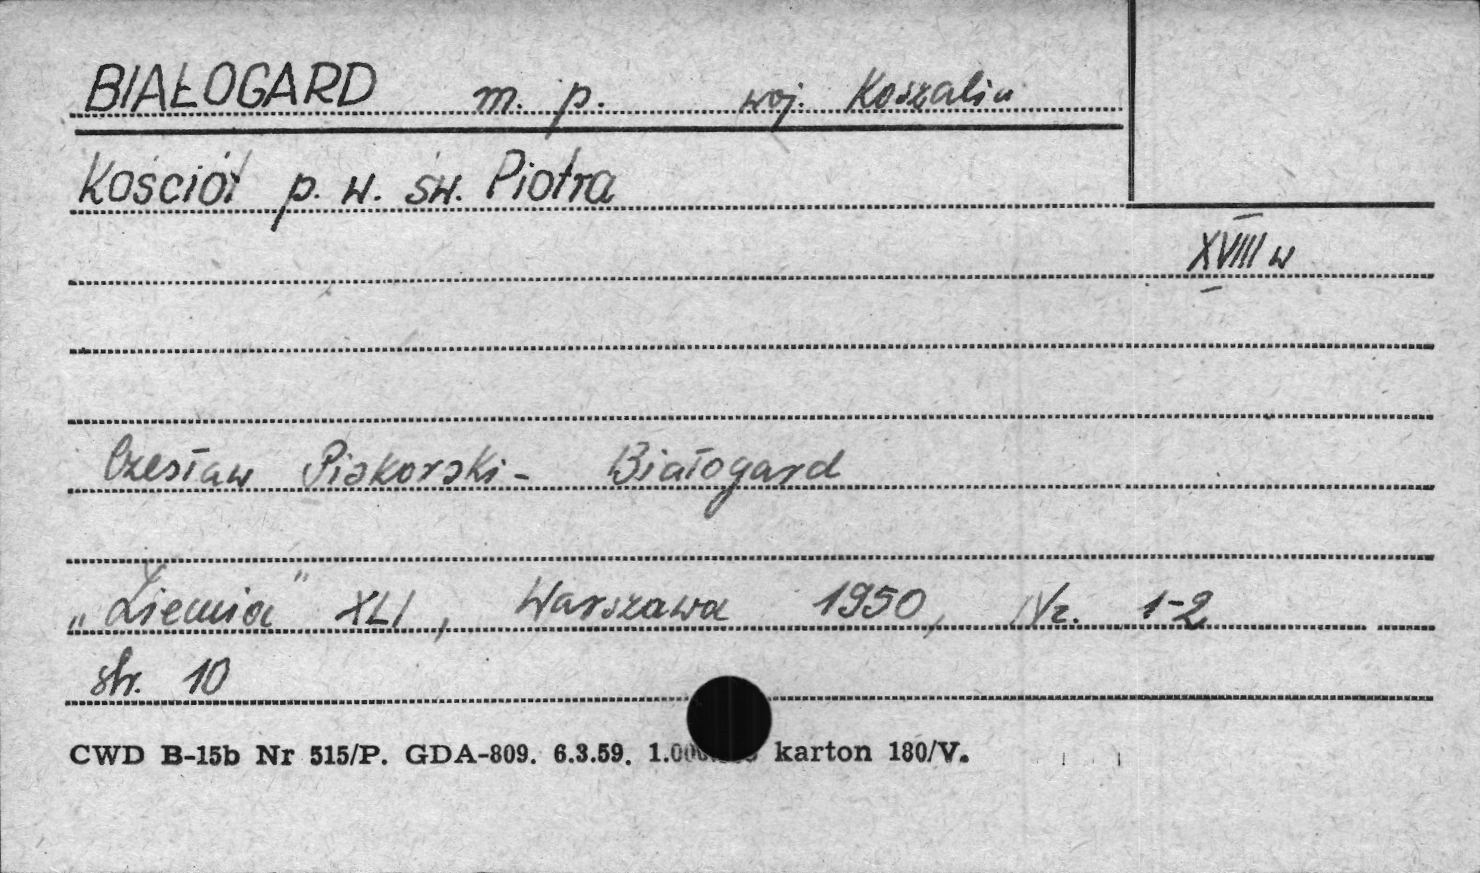 BIAŁOGARD m. p. woj. Koszalin
Kościół p. w. św. Piotra
XVIII w
Czesław Piskorski - Białogard
„Ziemia" XLI, Warszawa 1950, Nr. 1-2
str. 10
CWD B-15b Nr 515/P. GDA-809. 6.3.59. karton 180/V.